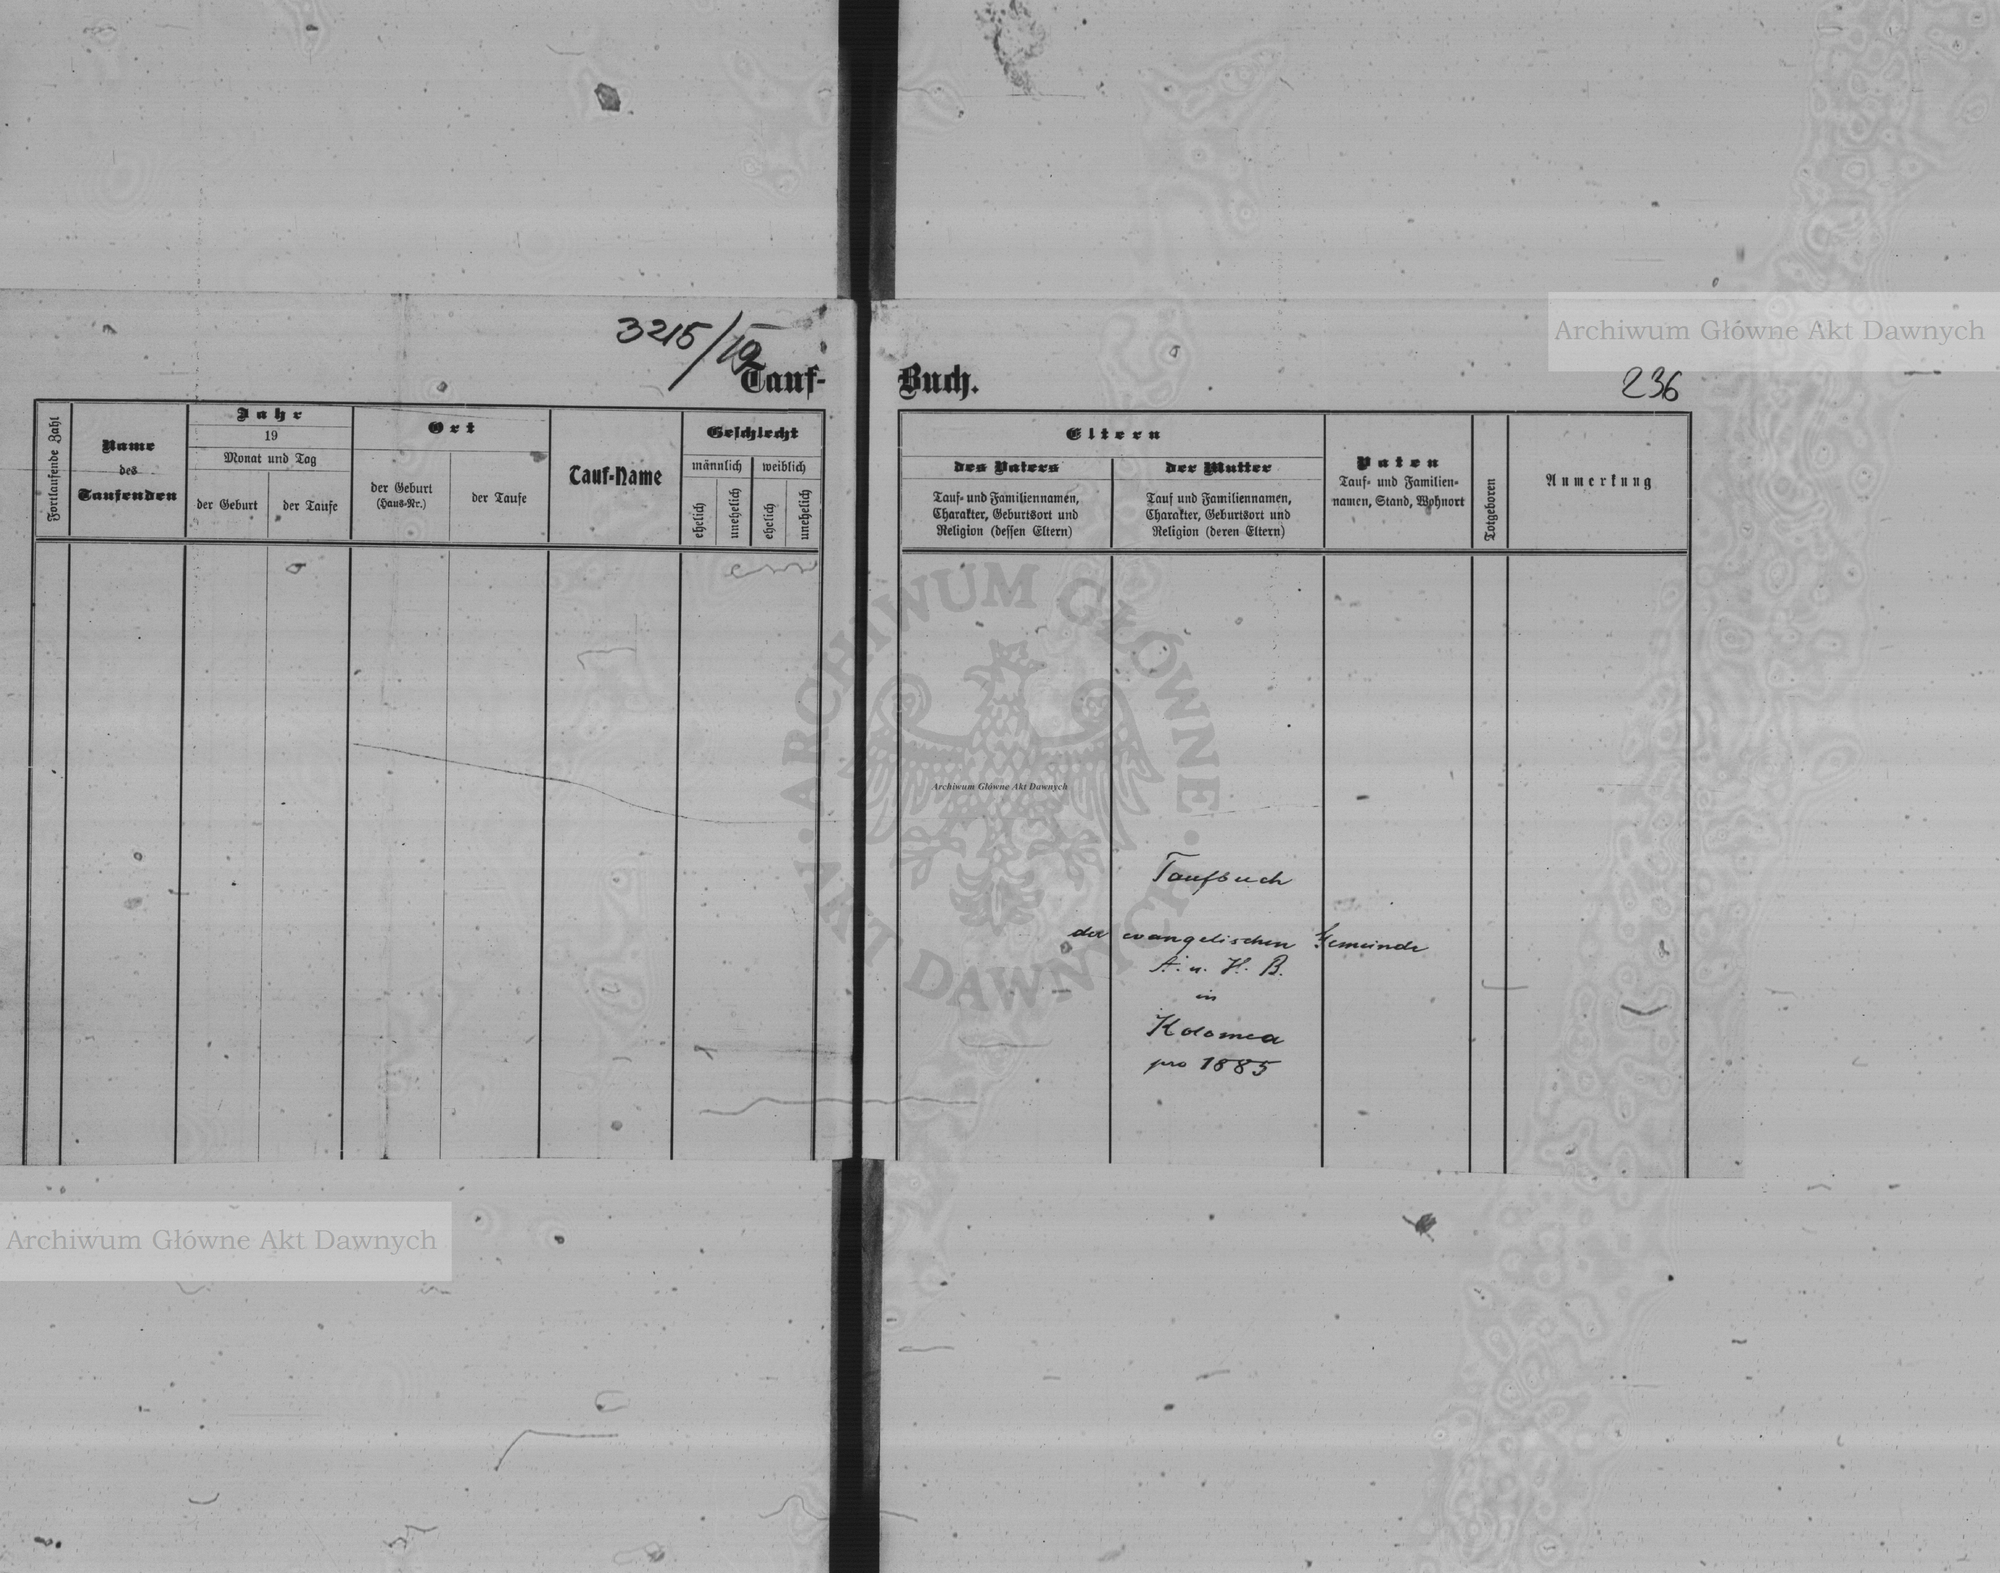 3215/19
Tauf-
Buch.
236
Archiwum Główne Akt Dawnych
Fortlaufende Zahl
Name
des
Taufenden
Jahr
19
Monat und Tag
der Geburt
der Taufe
Ort
der Geburt
(Haus-Nr.)
der Taufe
Tauf-Name
Geschlecht
männlich
weiblich
ehelich
unehelich
ehelich
unehelich
Eltern
des Vaters
Tauf- und Familiennamen,
Charakter, Geburtsort und
Religion (dessen Eltern)
der Mutter
Tauf und Familiennamen,
Charakter, Geburtsort und
Religion (deren Eltern)
Paten
Tauf- und Familien-
namen, Stand, Wohnort
Totgeboren
Anmerkung
ARCHIWUM GŁÓWNE
AKT DAWNYCH
Archiwum Główne Akt Dawnych
Taufbuch
der evangelischen Gemeinde
A. u. H. B.
in
Kolomea
pro 1885
Archiwum Główne Akt Dawnych